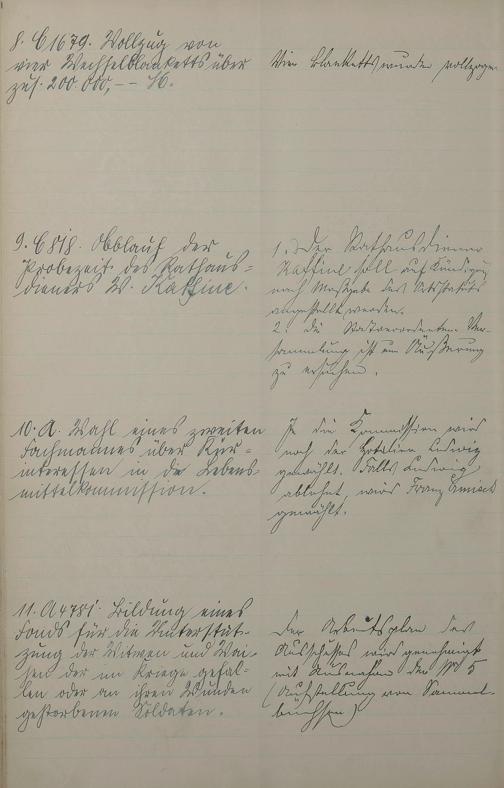 8. C1679. Vollzug von
vier Wechselblanketts über
zus. 200 000,-- M.
Vier Blanketts wurden vollzogen
9. C818. Ablauf der
Probezeit des Rathaus=
dieners W.
1. Der Rathausdiener
soll auf Kündigung
nach Maßgabe des Ortsstatuts
angestellt werden.
2. Die Stadtverordneten-Ver-
sammlung ist um Äußerung
zu ersuchen.
10. A. Wahl eines zweiten
Fachmannes über Kur=
interessen in die Lebens
mittelkommission.
In die Kommission wird
noch der Hotelier Ludwig
gewählt. Falls Ludwig
ablehnt, wird Franz
gewählt.
11. A4781. Bildung eines
Fonds für die Unterstüt-
zung der Witwen und Wai-
sen der im Kriege gefal-
len oder an ihren Wunden
gestorbenen Soldaten.
Der Arbeitsplan des
Ausschusses wird genehmigt
mit Ausnahme der № 5
(Aufstellung von Sammel-
büchsen)